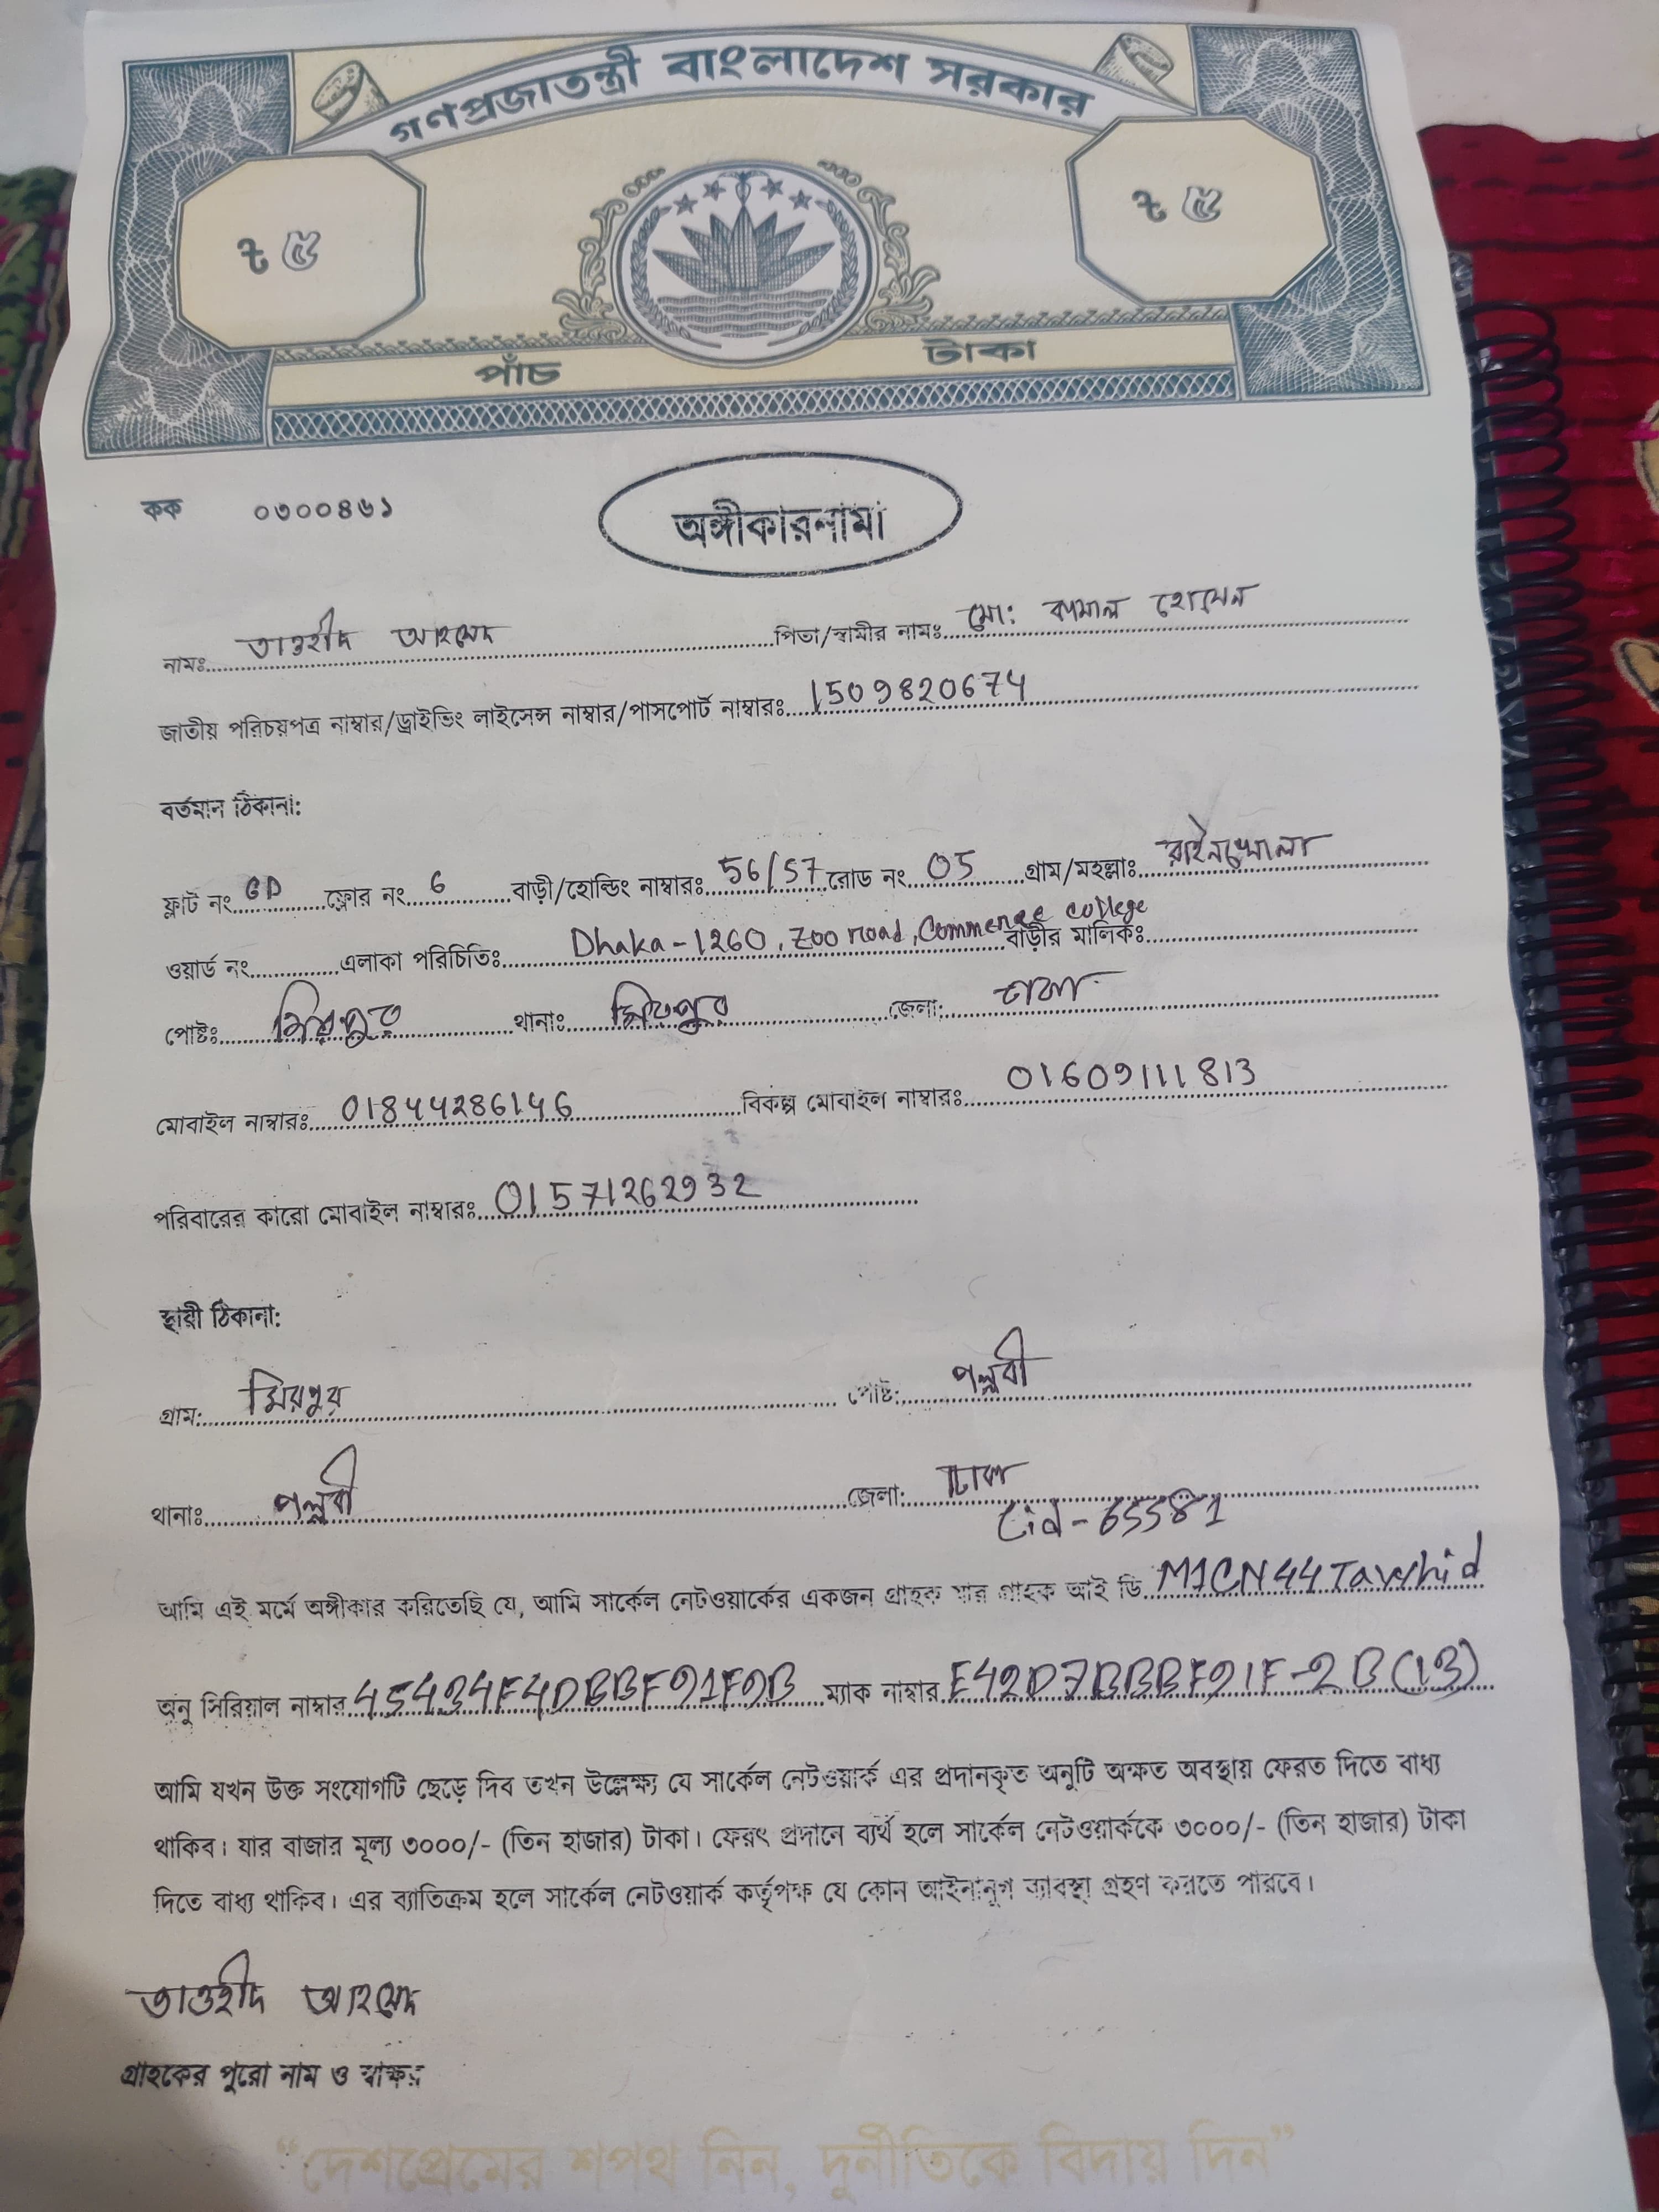 গণপ্রজাতন্ত্রী বাংলাদেশ সরকার
৳ ৫ ৳ ৫
পাঁচ টাকা
কক ০৩০০৪৬১
অঙ্গীকারনামা
নামঃ তাওহীদ আহমেদ পিতা/স্বামীর নামঃ মো: কামাল হোসেন
জাতীয় পরিচয়পত্র নাম্বার/ড্রাইভিং লাইসেন্স নাম্বার/পাসপোর্ট নাম্বারঃ 1509820674
বর্তমান ঠিকানা:
ফ্লাট নং ফ্লোর নং 6 বাড়ী/হোল্ডিং নাম্বারঃ 56/57 রোড নং 05 গ্রাম/মহল্লাঃ রাইনখোলা
ওয়ার্ড নং এলাকা পরিচিতিঃ Dhaka-1260, Zoo road, Commerce college বাড়ীর মালিকঃ
পোষ্টঃ মিরপুর থানাঃ মিরপুর জেলা: ঢাকা
মোবাইল নাম্বারঃ 01844286146 বিকল্প মোবাইল নাম্বারঃ 01609111813
পরিবারের কারো মোবাইল নাম্বারঃ 01571262932
স্থায়ী ঠিকানা:
গ্রাম: মিরপুর পোষ্ট: পল্লবী
থানাঃ পল্লবী জেলা: ঢাকা
Cid-65581
আমি এই মর্মে অঙ্গীকার করিতেছি যে, আমি সার্কেল নেটওয়ার্কের একজন গ্রাহক যার গ্রাহক আই ডি M1CN44Tawhid
অনু সিরিয়াল নাম্বার 45434F4DBBF91F9B ম্যাক নাম্বার E42D7BBBF91F-2B(13)
আমি যখন উক্ত সংযোগটি ছেড়ে দিব তখন উল্লেক্ষ্য যে সার্কেল নেটওয়ার্ক এর প্রদানকৃত অনুটি অক্ষত অবস্থায় ফেরত দিতে বাধ্য
থাকিব। যার বাজার মূল্য ৩০০০/- (তিন হাজার) টাকা। ফেরৎ প্রদানে ব্যর্থ হলে সার্কেল নেটওয়ার্ককে ৩০০০/- (তিন হাজার) টাকা
দিতে বাধ্য থাকিব। এর ব্যাতিক্রম হলে সার্কেল নেটওয়ার্ক কর্তৃপক্ষ যে কোন আইনানুগ ব্যাবস্থা গ্রহণ করতে পারবে।
তাওহীদ আহমেদ
গ্রাহকের পুরো নাম ও স্বাক্ষর
“দেশপ্রেমের শপথ নিন, দুর্নীতিকে বিদায় দিন”